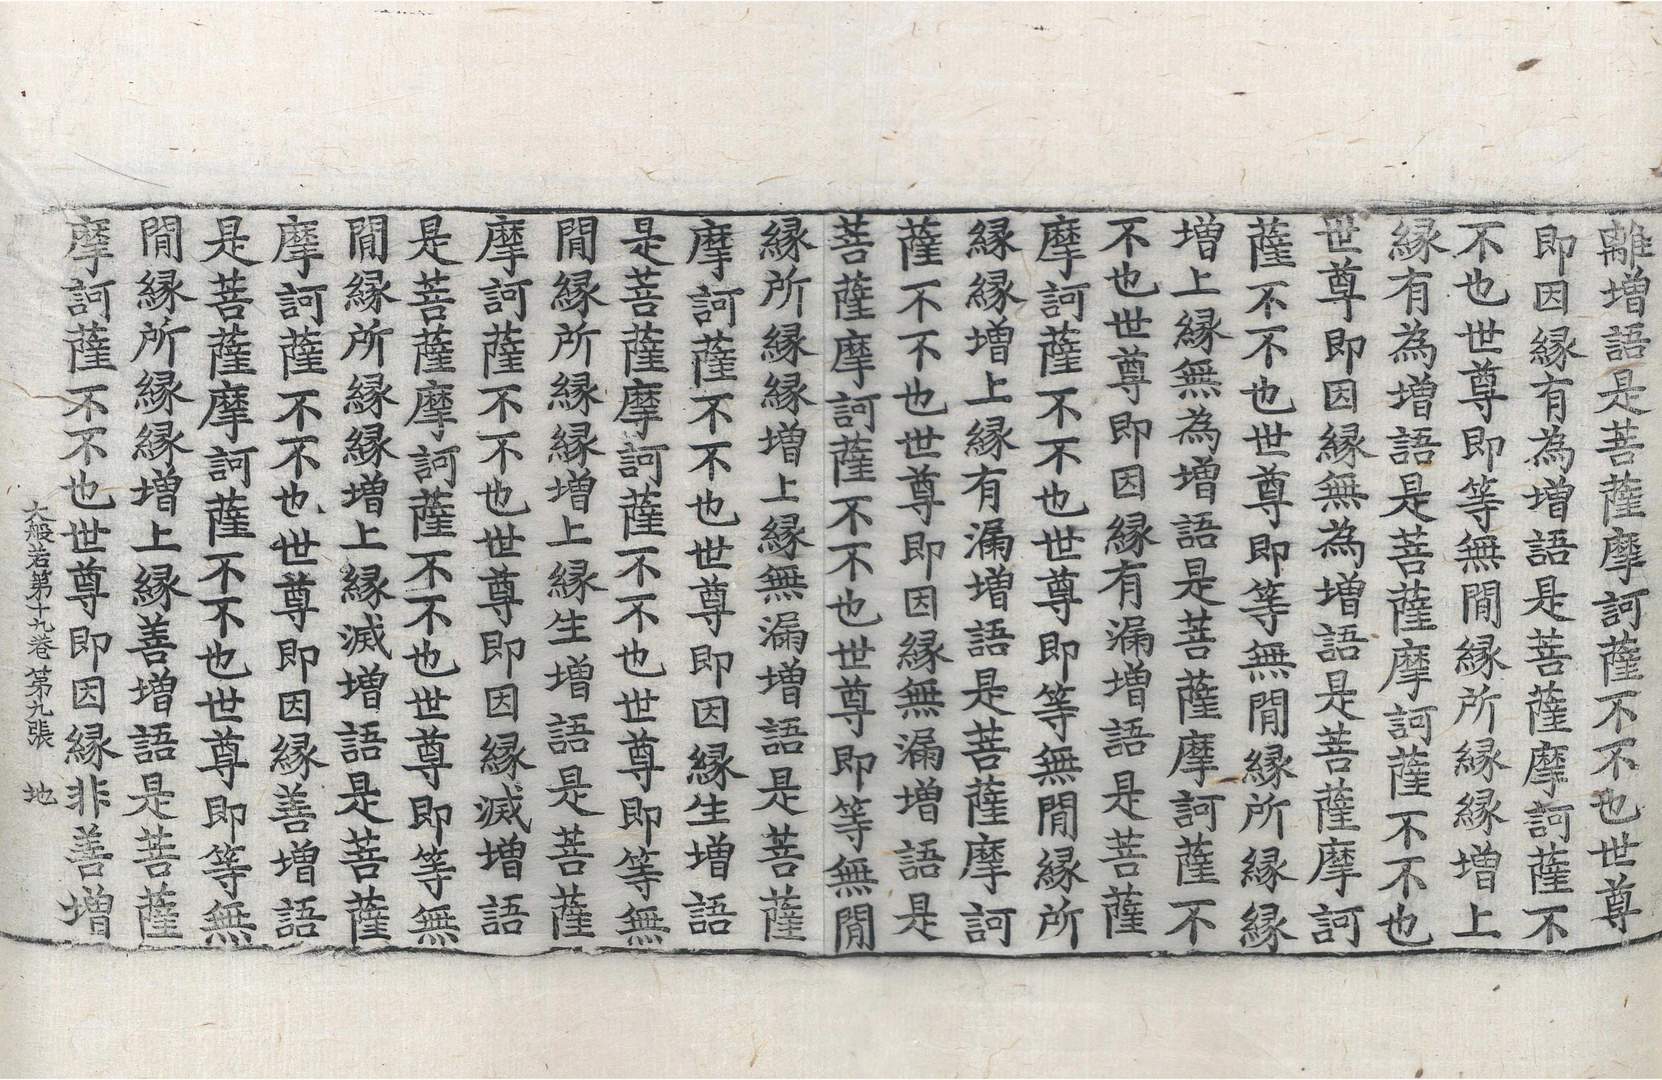 離増語是菩薩摩訶薩不不也世尊
即因縁有為増語是菩薩摩訶薩不
不也世尊即等無間縁所縁縁増上
縁有為増語是菩薩摩訶薩不不也
世尊即因縁無為増語是菩薩摩訶
薩不不也世尊即等無間縁所縁縁
増上縁無為増語是菩薩摩訶薩不
不也世尊即因縁有漏増語是菩薩
摩訶薩不不也世尊即等無間縁所
縁縁増上縁有漏増語是菩薩摩訶
薩不不也世尊即因縁無漏増語是
菩薩摩訶薩不不也世尊即等無間
縁所縁縁増上縁無漏増語是菩薩
摩訶薩不不也世尊即因縁生増語
是菩薩摩訶薩不不也世尊即等無
間縁所縁縁増上縁生増語是菩薩
摩訶薩不不也世尊即因縁滅増語
是菩薩摩訶薩不不也世尊即等無
間縁所縁縁増上縁滅増語是菩薩
摩訶薩不不也世尊即因縁善増語
是菩薩摩訶薩不不也世尊即等無
間縁所縁縁増上縁善増語是菩薩
摩訶薩不不也世尊即因縁非善増
大般若第十九卷 第九張 地